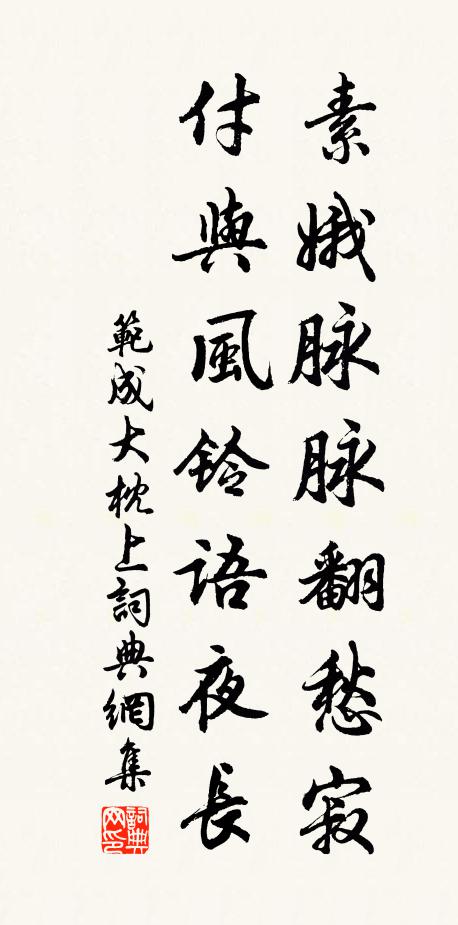 素娥脉脉翻愁寂
付與風鈴語夜長
範成大枕上詞典網集
詞典網印